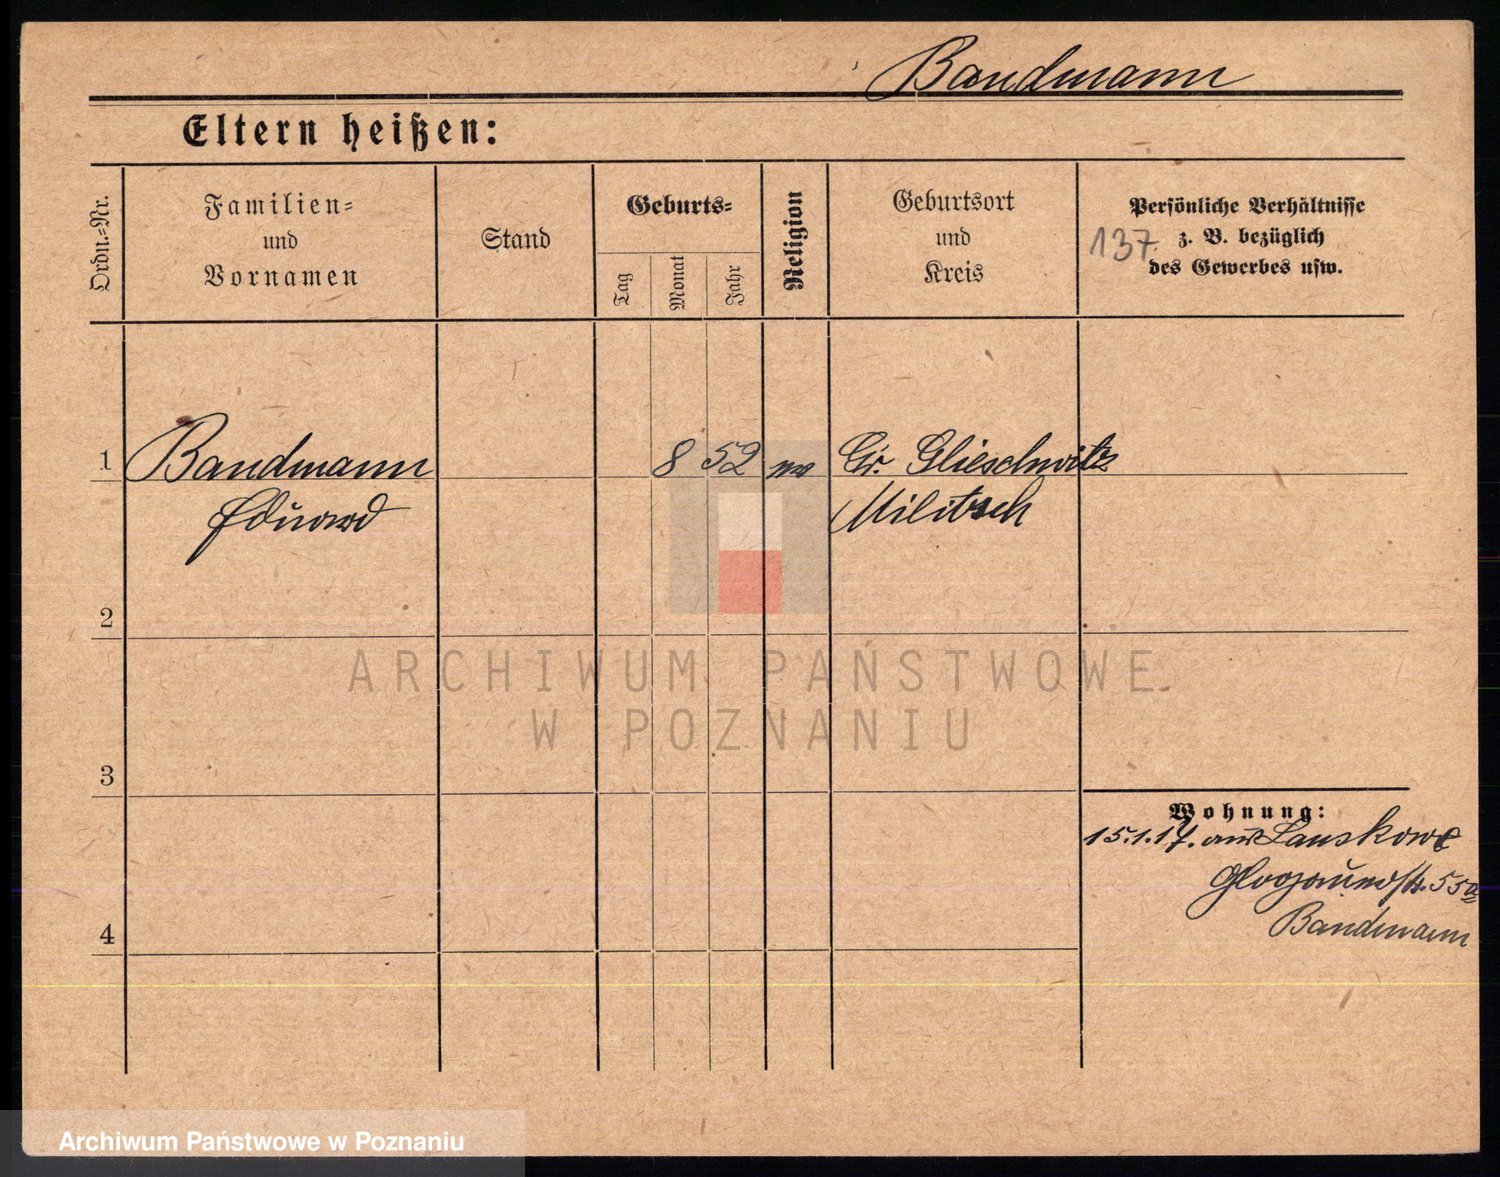 Bandmann
Eltern heißen:
Ordn.=Nr.
Familien=
und
Vornamen
Stand
Geburts=
Tag
Monat
Jahr
Religion
Geburtsort
und
Kreis
Persönliche Verhältnisse
z. B. bezüglich
des Gewerbes usw.
137
1 Bandmann 8 52 Gr. Glieschwitz
Eduard Militsch
2
3
4
Wohnung:
15.1.17. aus Lauskowe
Glogauerstr. 55a
Bandmann
ARCHIWUM PAŃSTWOWE
W POZNANIU
Archiwum Państwowe w Poznaniu